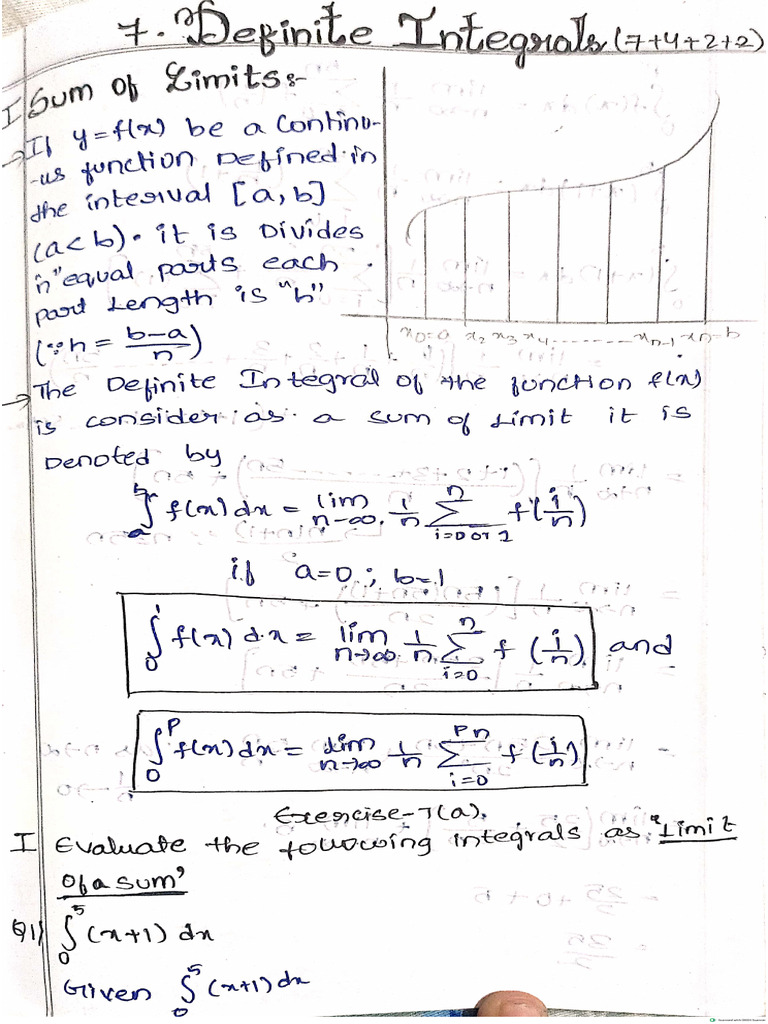 7. Definite Integrals (7+4+2+2)
I Sum of Limits:-
→ If y=f(x) be a continu-
-us function Defined in
the interval [a, b]
(a<b). it is Divides
"n" equal parts each
part Length is "h"
(∵ h = b-a/n)
x0=a x2 x3 x4 ........... xn-1 xn-b
→ The Definite Integral of the function f(x)
is consider as a sum of limit it is
Denoted by
∫_a^b f(x) dx = lim n→∞. 1/n Σ_{i=0 or 1}^n f(i/n)
if a=0; b=1
∫_0^1 f(x) d.x = lim n→∞ 1/n Σ_{i=0}^n f(i/n) and
∫_0^P f(x) dx = lim n→∞ 1/n Σ_{i=0}^{Pn} f(i/n)
Exercise-7(a).
I Evaluate the following integrals as "Limit
of a sum"
Q1) ∫_0^5 (x+1) dx
Given ∫_0^5 (x+1) dx